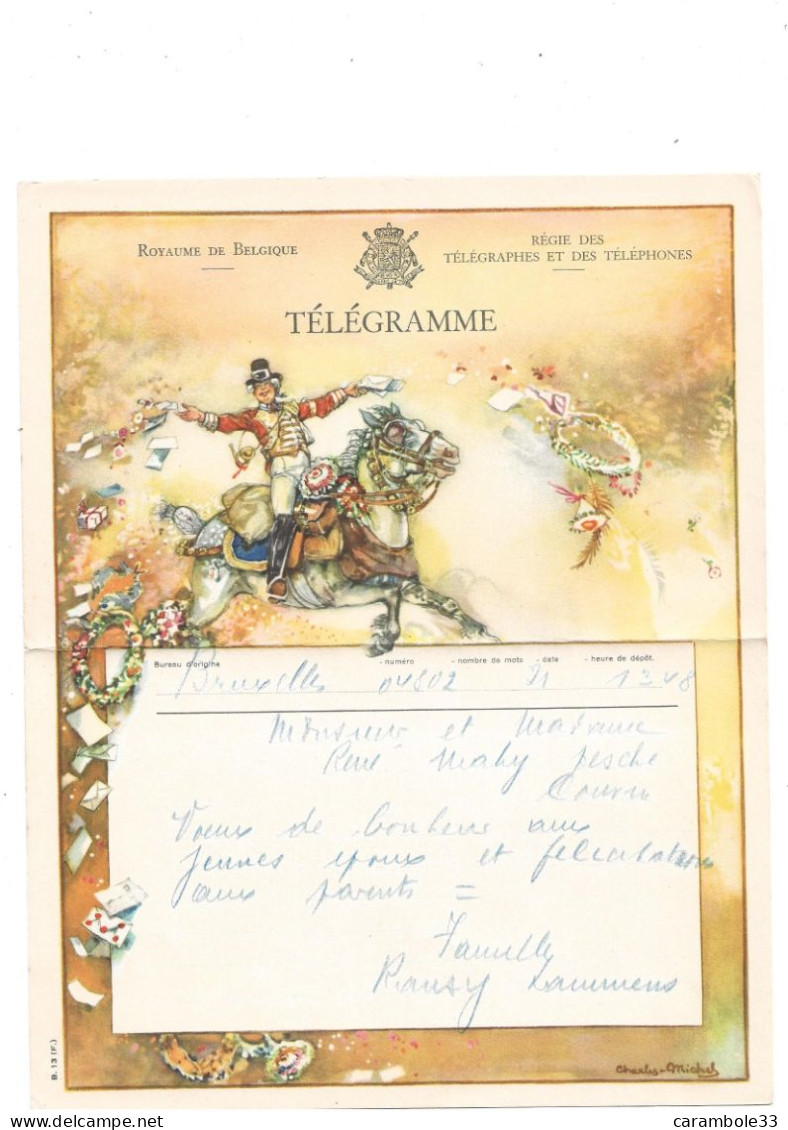 ROYAUME DE BELGIQUE
RÉGIE DES
TÉLÉGRAPHES ET DES TÉLÉPHONES
TÉLÉGRAMME
Bureau d'origine - numéro - nombre de mots - date - heure de dépôt.
Bruxelles 04802 21 1348
Monsieur et Madame
René Mahy Pesche
Couvin
Voeux de bonheur aux
jeunes époux et félicitations
aux parents =
Famille
Ransy Lammens
B. 13 (F.)
Charles-Michel
www.delcampe.net
carambole33